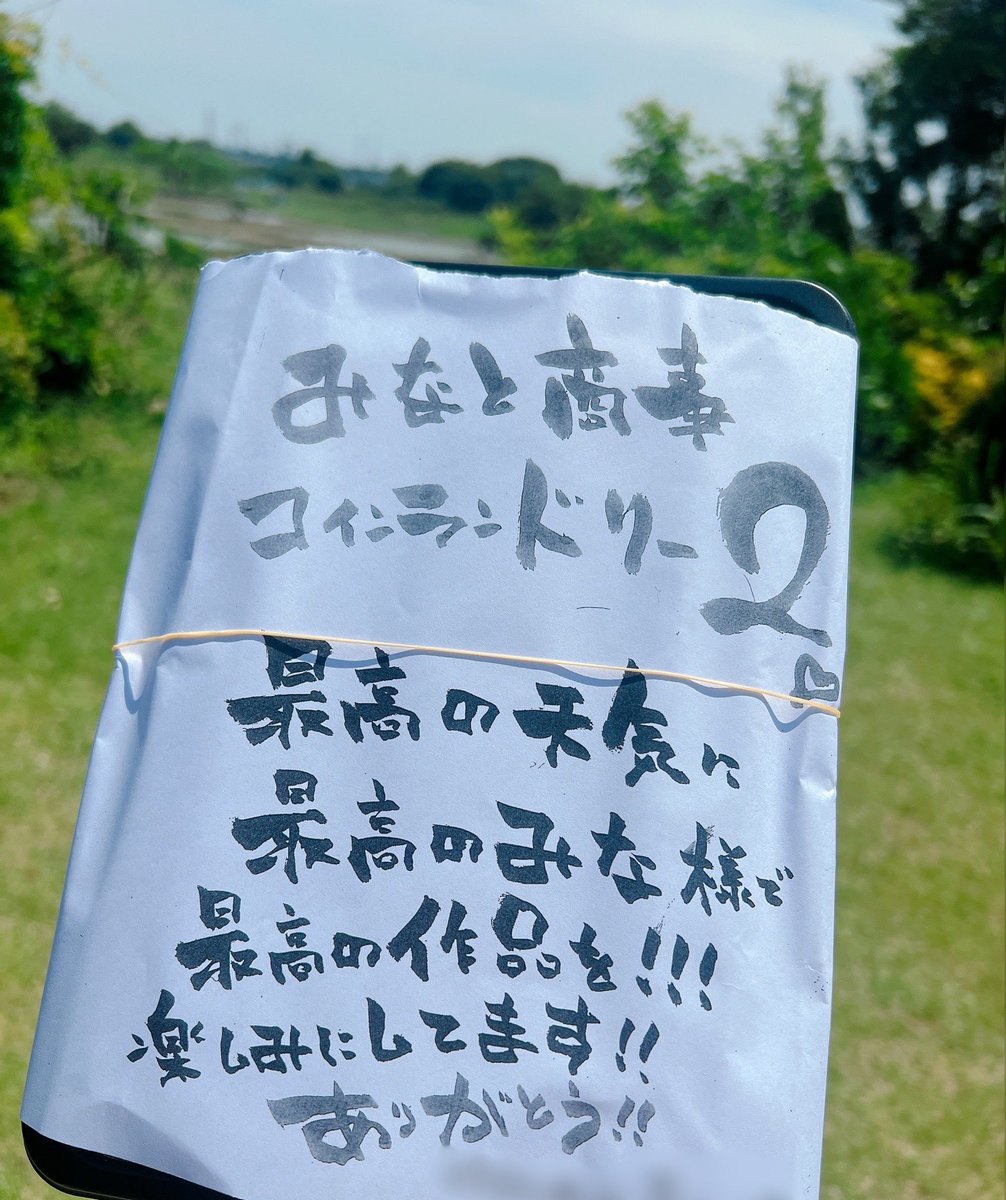 みなと商事
コインランドリー2
最高の天気に
最高のみな様で
最高の作品を!!!
楽しみにしてます!!
ありがとう!!